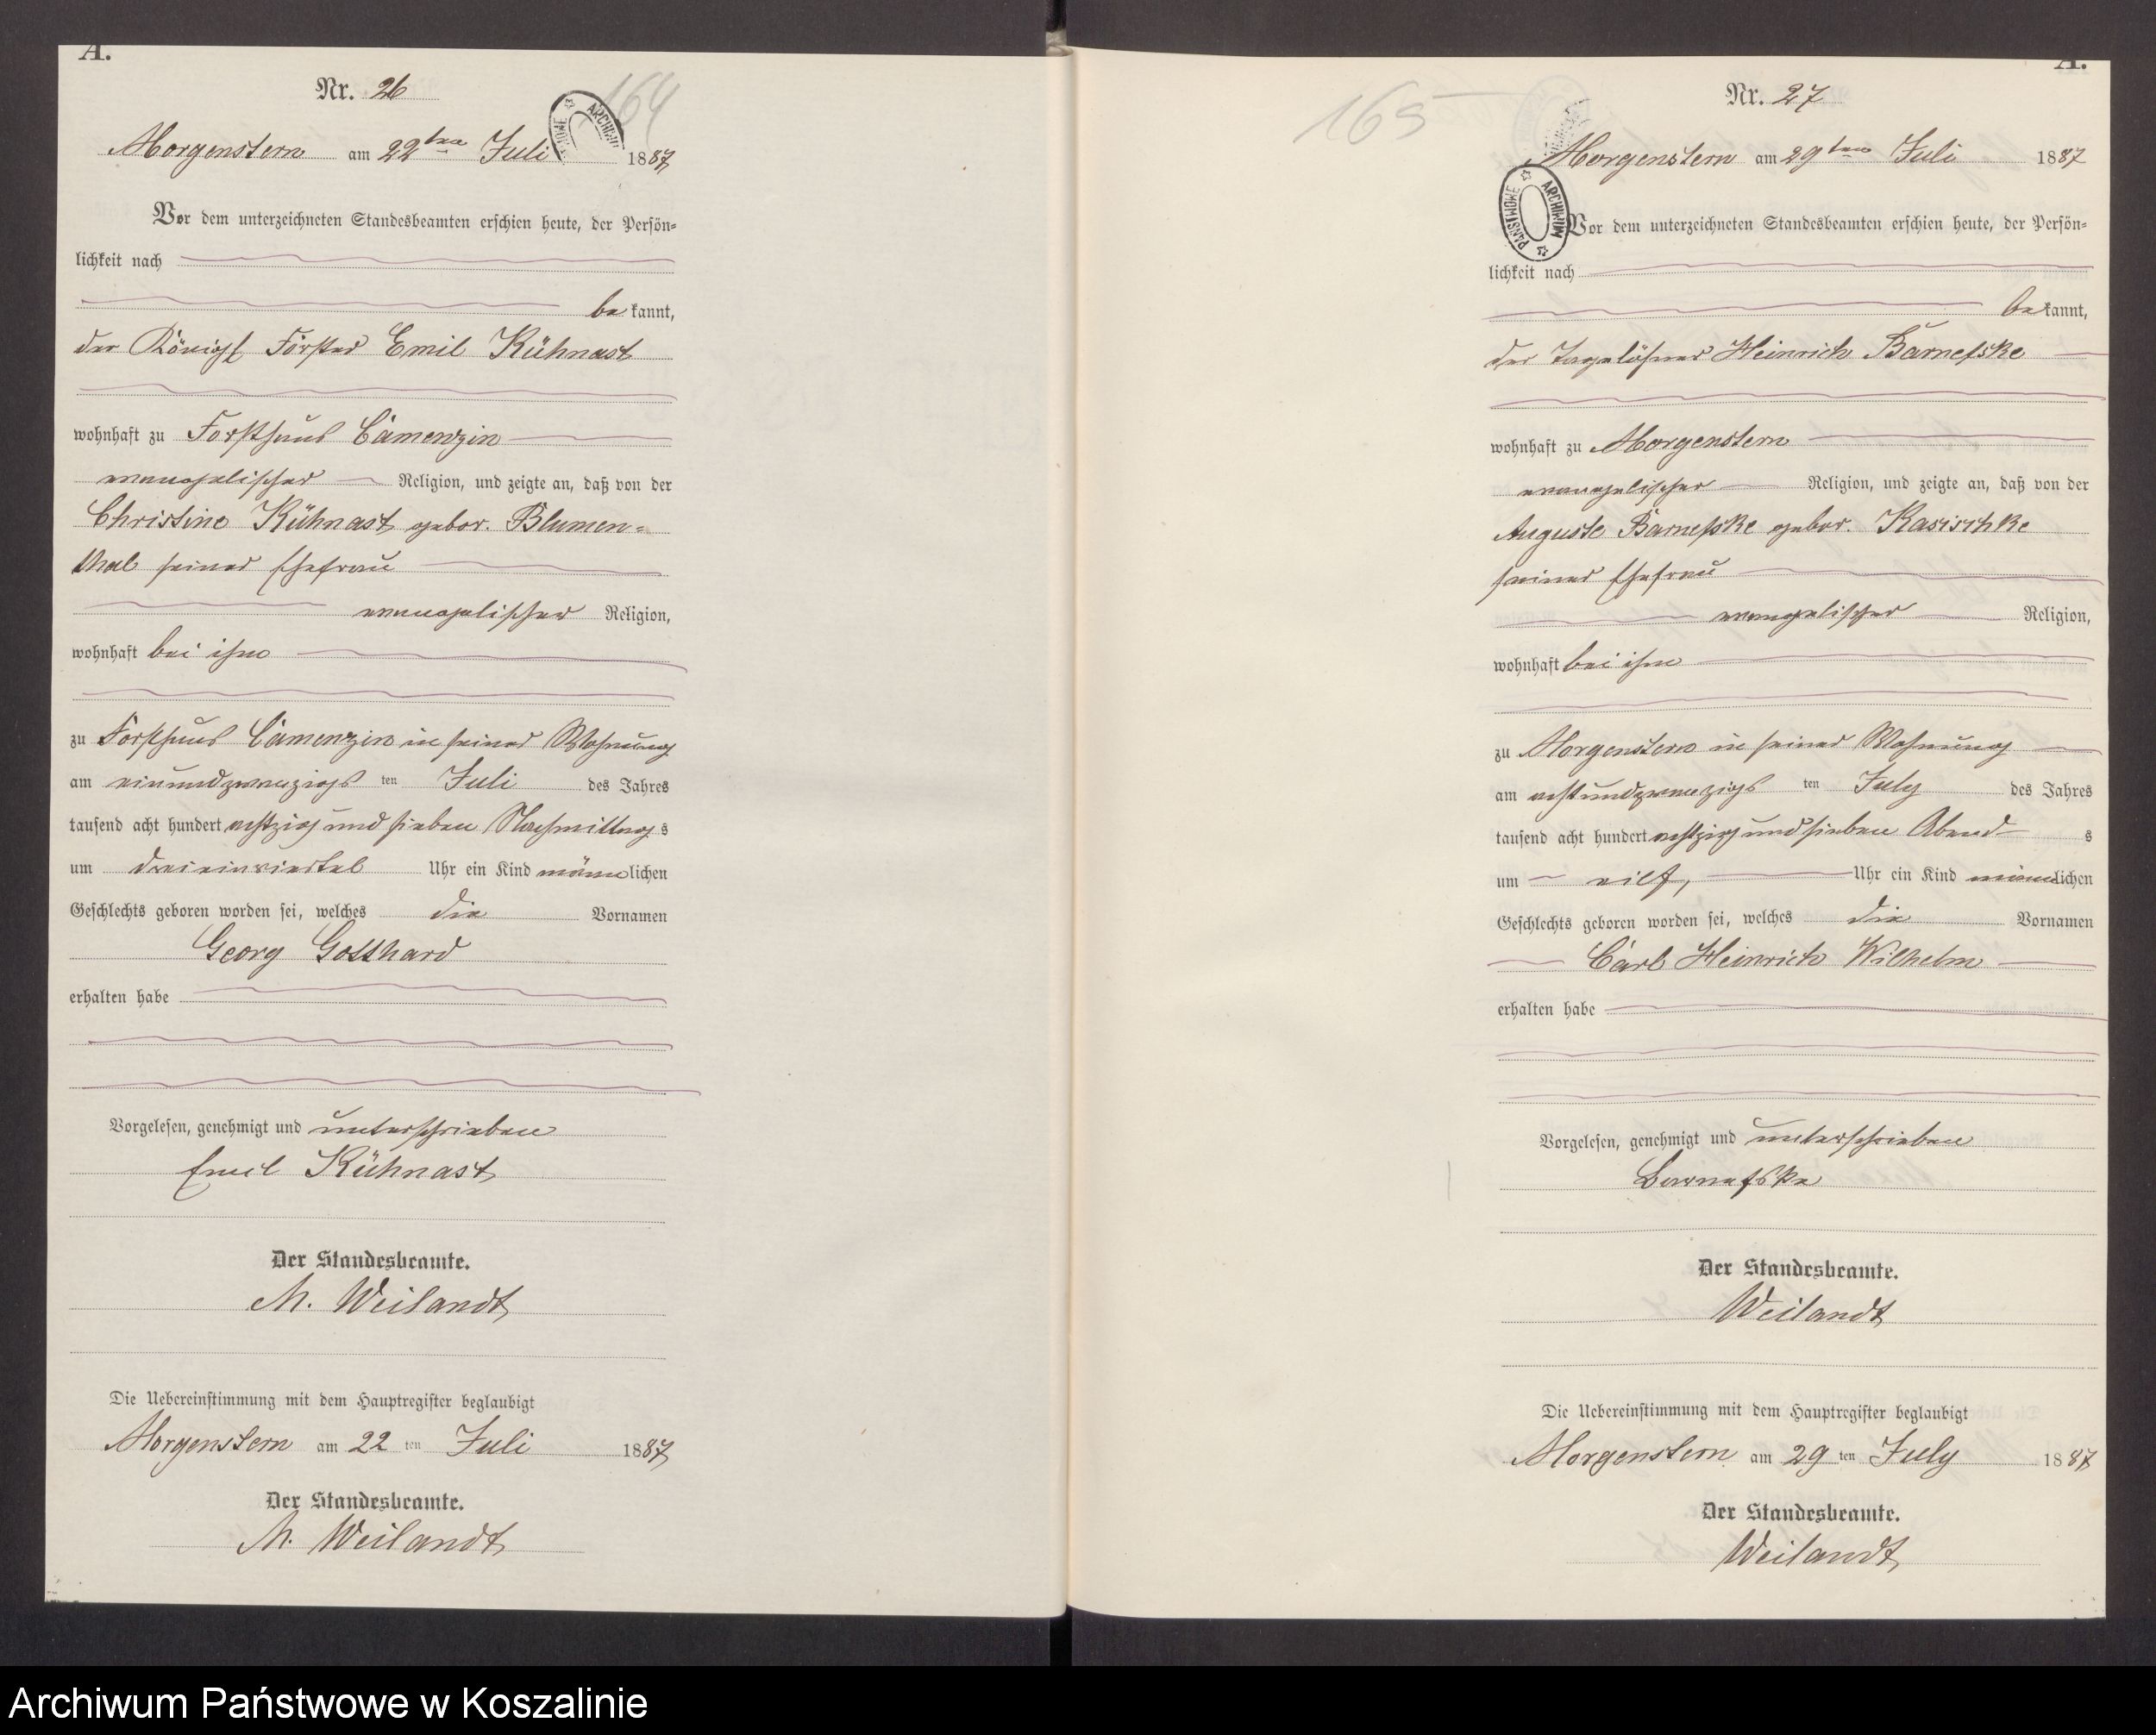 A.
Nr. 26
164
Morgenstern am 22ten Juli 1887
ARCHIWUM
Vor dem unterzeichneten Standesbeamten erschien heute, der Persön=
lichkeit nach
bekannt,
der Königl Förster Emil Kühnast
wohnhaft zu Forsthaus Camenzin
evangelischer Religion, und zeigte an, daß von der
Christine Kühnast gebor. Blumen=
thal seiner Ehefrau
evangelischer Religion,
wohnhaft bei ihm
zu Forsthaus Camenzin in seiner Wohnung
am einundzwanzigsten Juli des Jahres
tausend acht hundert achtzig und sieben Nachmittags
um drei einviertel Uhr ein Kind männlichen
Geschlechts geboren worden sei, welches die Vornamen
Georg Gotthard
erhalten habe
Vorgelesen, genehmigt und unterschrieben
Emil Kühnast
Der Standesbeamte.
M. Weilandt
Die Uebereinstimmung mit dem Hauptregister beglaubigt
Morgenstern am 22 ten Juli 1887
Der Standesbeamte.
M. Weilandt
A.
165
Nr. 27
Morgenstern am 29ten Juli 1887
ARCHIWUM PAŃSTWOWE
Vor dem unterzeichneten Standesbeamten erschien heute, der Persön=
lichkeit nach
bekannt,
der Tagelöhner Heinrich Barnefske
wohnhaft zu Morgenstern
evangelischer Religion, und zeigte an, daß von der
Auguste Barnefske gebor. Kasischke
seiner Ehefrau
evangelischer Religion,
wohnhaft bei ihm
zu Morgenstern in seiner Wohnung
am achtundzwanzigsten July des Jahres
tausend acht hundert achtzig und sieben Abends
um eilf, Uhr ein Kind männlichen
Geschlechts geboren worden sei, welches die Vornamen
Carl Heinrich Wilhelm
erhalten habe
Vorgelesen, genehmigt und unterschrieben
Barnefske
Der Standesbeamte.
Weilandt
Die Uebereinstimmung mit dem Hauptregister beglaubigt
Morgenstern am 29 ten July 1887
Der Standesbeamte.
Weilandt
Archiwum Państwowe w Koszalinie